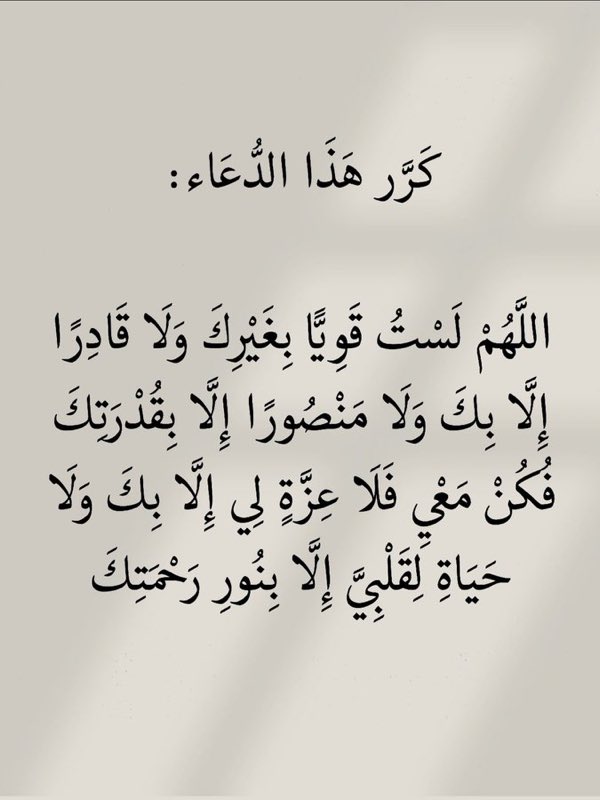 كَرَّر هَذَا الدُّعَاء:
اللَّهُمْ لَسْتُ قَوِيًّا بِغَيْرِكَ وَلَا قَادِرًا
إِلَّا بِكَ وَلَا مَنْصُورًا إِلَّا بِقُدْرَتِكَ
فُكُنْ مَعْيِ فَلَا عِزَّةٍ لِي إِلَّا بِكَ وَلَا
حَيَاةِ لِقَلْبِيَّ إِلَّا بِنُورِ رَحْمَتِكَ